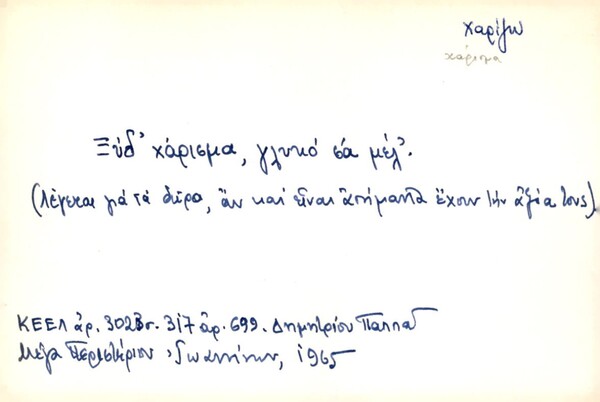 χαρίζω
χάρισμα
Ξύδ' χάρισμα, γλυκό σά μέλ'.
(λέγεται γιά τά δῶρα, ἄν καί εἶναι ἀσήμαντα ἔχουν τήν ἀξία τους)
ΚΕΕΛ ἀρ. 3023 σ. 317 ἀρ. 699. Δημητρίου Παππᾶ
Μέγα Περιστέριον Ἰωαννίνων, 1965